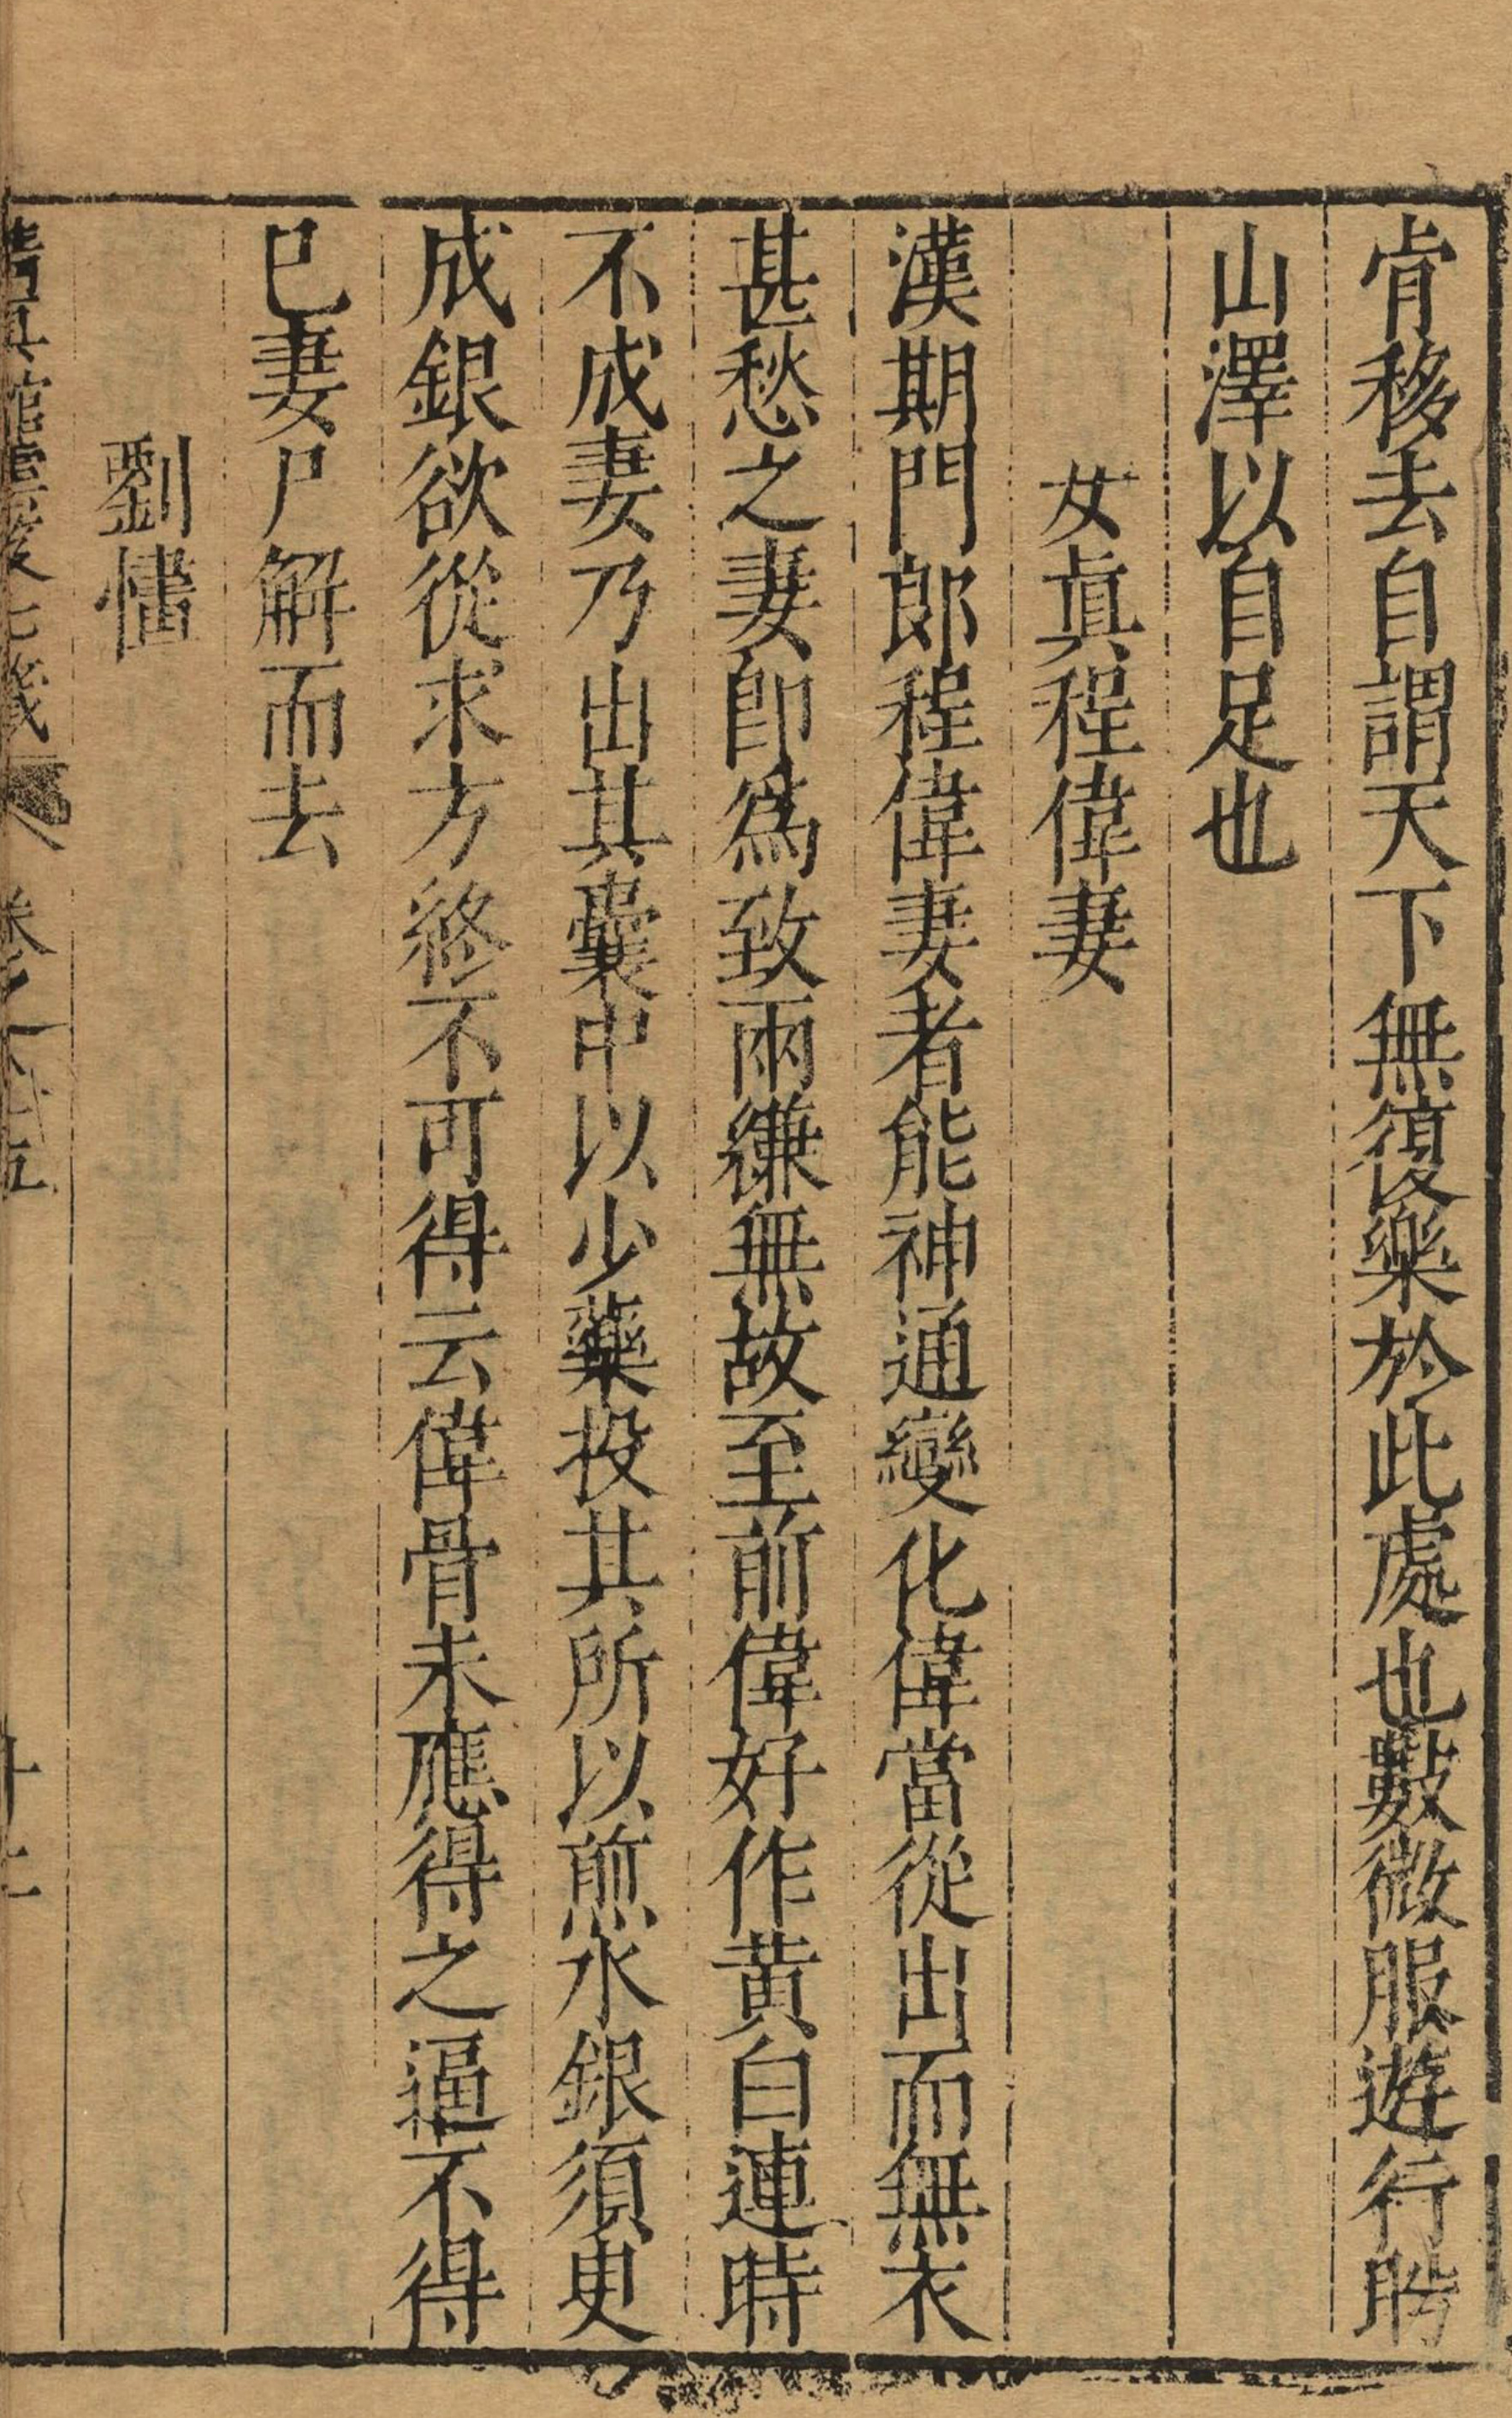 肯移去自謂天下無復樂於此處也數微服遊行聘
山澤以自足也
女眞程偉妻
漢期門郎程偉妻者能神通變化偉當從出而無衣
甚愁之妻卽爲致兩縑無故至前偉好作黃白連時
不成妻乃出其囊中以少藥投其所以煎水銀須臾
成銀欲從求方終不可得云偉骨未應得之逼不得
已妻尸解而去
劉㦃
清眞館雲笈七籤 卷之一百十五